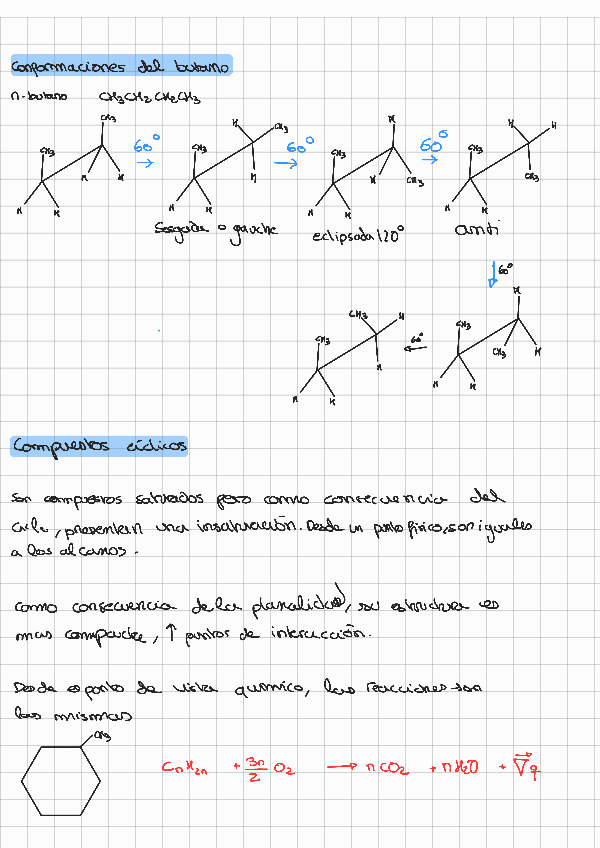 Conformaciones del butano
n-butano CH3CH2CH2CH3
CH3 CH3 H H H H
60°
CH3 H CH3 H H H
60°
CH3 H H CH3 H H
60°
CH3 H H CH3 H H
Sesgada o gauche
eclipsada 120°
anti
60°
CH3 H CH3 H H H
60°
CH3 CH3 H H H H
Compuestos cíclicos
Son compuestos saturados pero como consecuencia del
ciclo, presentan una insaturación. Desde un punto físico, son iguales
a los alcanos.
como consecuencia de la planalidad, su estructura es
mas compacta, ↑ puntos de interacción.
Desde el punto de vista químico, las reacciones son
las mismas
CH3
CnH2n + 3n/2 O2 → nCO2 + nH2O + ∇q